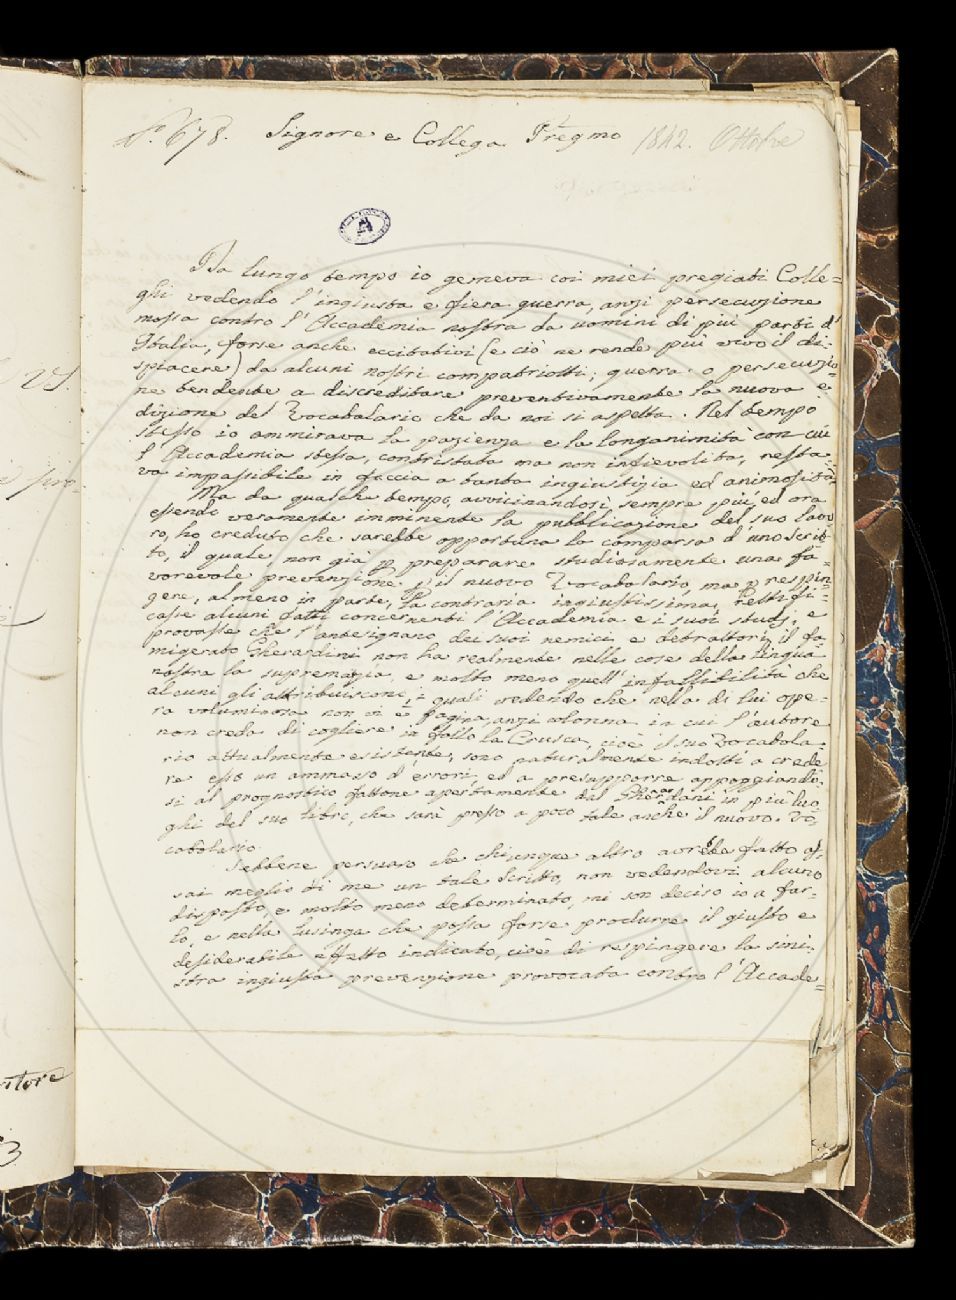 N.° 678. Signore e Collega Preg.mo 1842. Ottobre
Da lungo tempo io gemeva coi miei pregiati Colle=
ghi vedendo l'ingiusta e fiera guerra, anzi persecuzione
mossa contro l'Accademia nostra da uomini di più parti d'
Italia, forse anche eccitativi (e ciò ne rende più vivo il di=
spiacere) da alcuni nostri compatriotti; guerra o persecuzio=
ne tendente a discreditare preventivamente la nuova e=
dizione del Vocabolario che da noi si aspetta. Nel tempo
stesso io ammirava la pazienza e la longanimità con cui
l'Accademia stessa, contristata ma non infievolita, resta=
va impassibile in faccia a tanta ingiustizia ed animosità.
Ma da qualche tempo, avvicinandosi sempre più, ed ora
essendo veramente imminente la pubblicazione del suo lavo=
ro, ho creduto che sarebbe opportuna la comparsa d'uno scrit=
to, il quale non già p preparare studiosamente una fa=
vorevole prevenzione p il nuovo Vocabolario, ma p respin=
gere, almeno in parte, la contraria ingiustissima, rettifi=
casse alcuni fatti concernenti l'Accademia e i suoi studj, e
provasse che l'antesignano dei suoi nemici e detrattori, il fa=
migerato Gherardini non ha realmente nelle cose della lingua
nostra la supremazia, e molto meno quell'infallibilità che
alcuni gli attribuiscono, i quali vedendo che nella di lui ope=
ra voluminosa non vi è pagina, anzi colonna in cui l'autore
non creda di cogliere in fallo la Crusca, cioè il suo Vocabola=
rio attualmente esistente, sono naturalmente indotti a crede=
re esso un ammasso d'errori, ed a presupporre appoggiando=
si al prognostico fattone apertamente dal Gherardini in più luo=
ghi del suo libro, che sarà presso a poco tale anche il nuovo Vo=
cabolario.
Sebbene persuaso che chiunque altro avrebbe fatto as=
sai meglio di me un tale scritto, non vedendovi alcuno
disposto, e molto meno determinato, mi son deciso io a far=
lo, e nella lusinga che possa forse produrre il giusto e
desiderabile effetto indicato, cioè di respingere la sini=
stra ingiusta prevenzione provocata contro l'Accade=